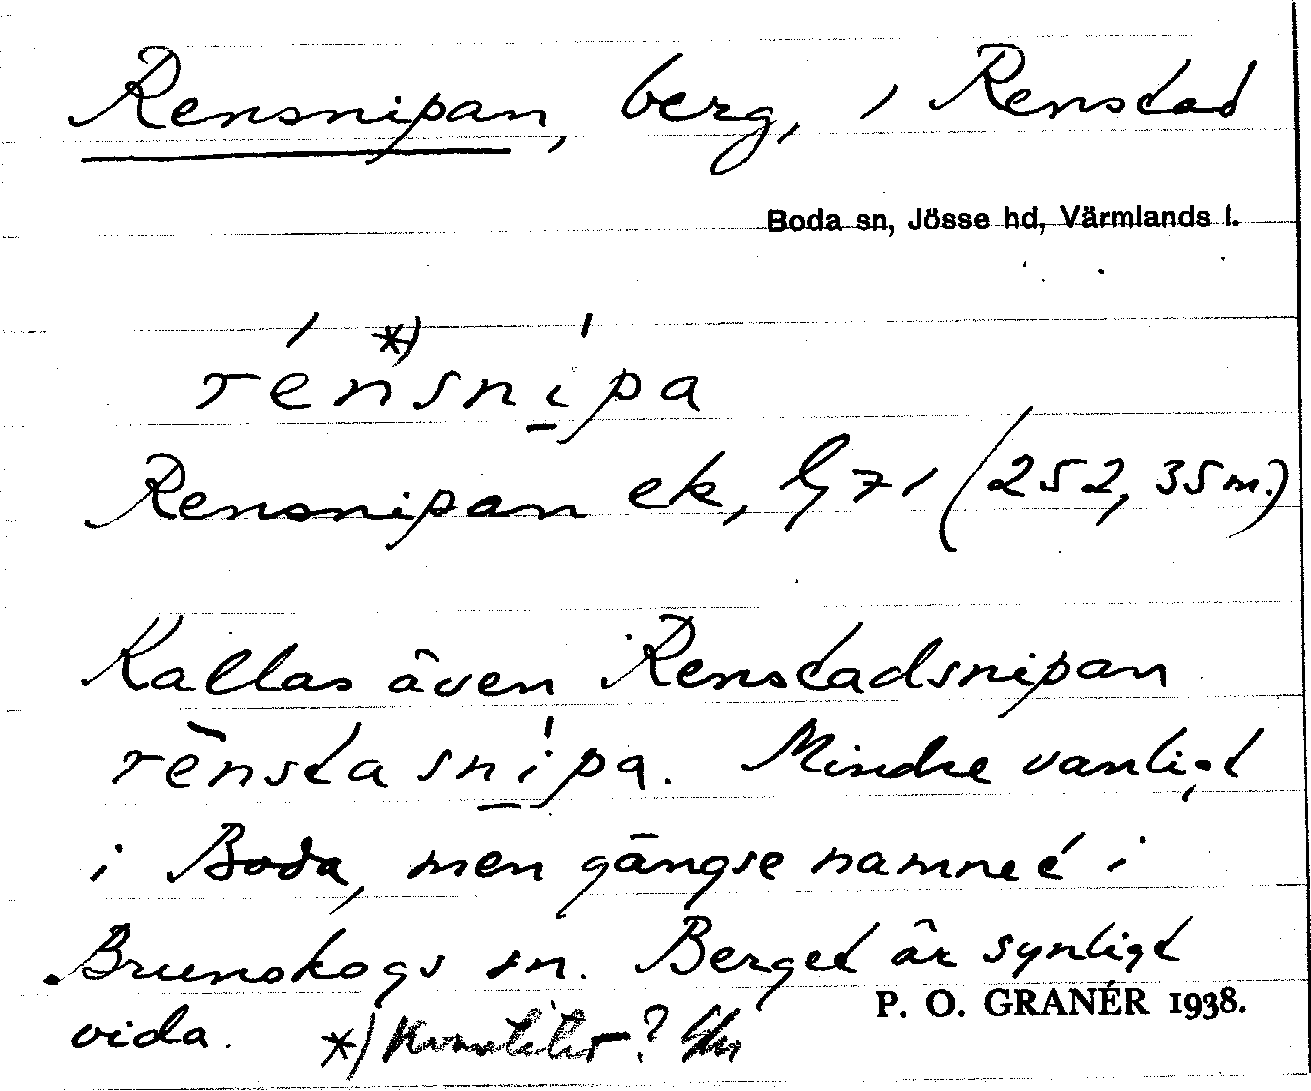 Rensnipan, berg, i Renstad
Boda sn, Jösse hd, Värmlands l.
*)
rénsnípa
Rensnipan ek, G 71 (252,35 m.)
Kallas även Renstadsnipan
rēnstasnípa. Mindre vanligt
i Boda, men gängse namnet i
Brunskogs sn. Berget är synligt
vida.
P. O. GRANÉR 1938.
*) Kvantitet?